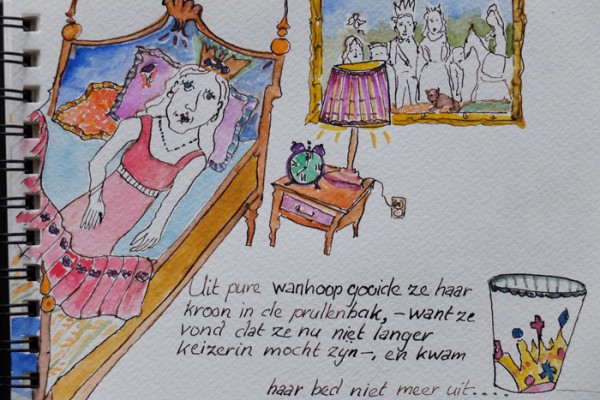 Uit pure wanhoop gooide ze haar
kroon in de prullenbak, - want ze
vond dat ze nu niet langer
keizerin mocht zyn -, en kwam
haar bed niet meer uit....